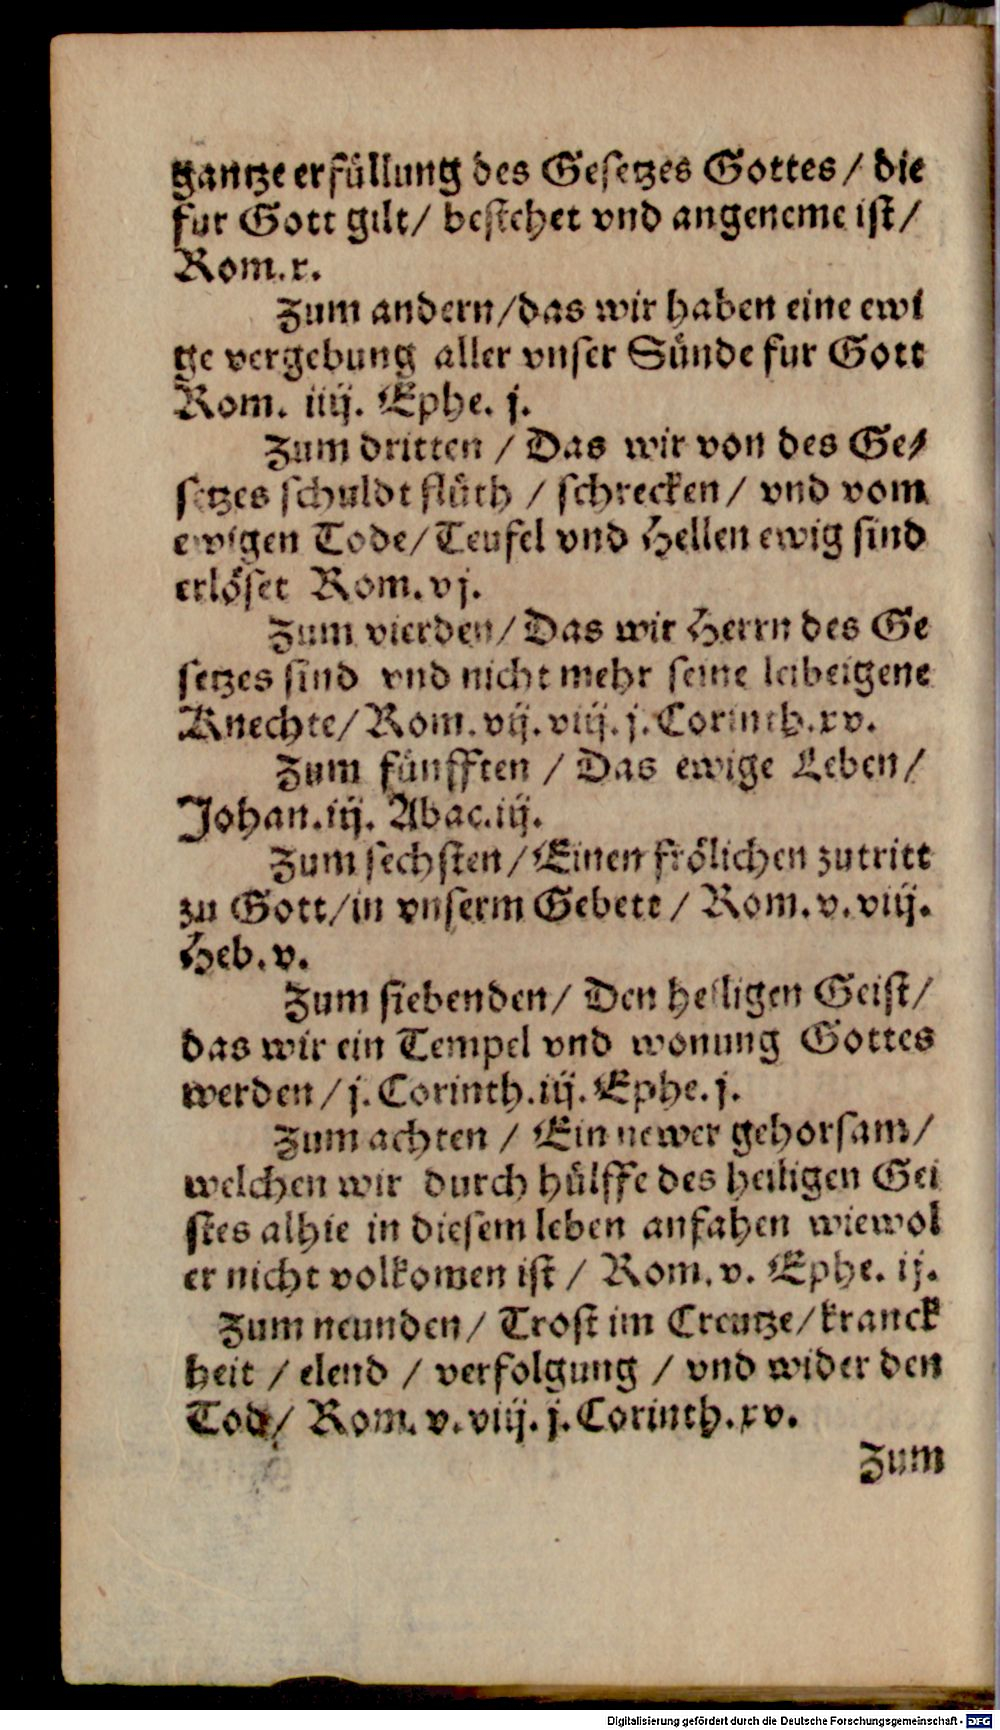 gantze erfüllung des Gesetzes Gottes / die
fur Gott gilt / bestehet vnd angeneme ist /
Rom. x.
Zum andern / das wir haben eine ewi
ge vergebung aller vnser Sünde fur Gott
Rom. iiij. Ephe. j.
Zum dritten / Das wir von des Ge-
setzes schuldt flüch / schrecken / vnd vom
ewigen Tode / Teufel vnd Hellen ewig sind
erlöset Rom. vj.
Zum vierden / Das wir Herrn des Ge
setzes sind vnd nicht mehr seine leibeigene
Knechte / Rom. vij. viij. j. Corinth. xv.
Zum fünfften / Das ewige Leben /
Johan. iij. Abac. iij.
Zum sechsten / Einen frölichen zutritt
zu Gott / in vnserm Gebete / Rom. v. viij.
Heb. v.
Zum siebenden / Den heiligen Geist /
das wir ein Tempel vnd wonung Gottes
werden / j. Corinth. iij. Ephe. j.
Zum achten / Ein newer gehorsam /
welchen wir durch hülffe des heiligen Gei
stes alhie in diesem leben anfahen wiewol
er nicht volkomen ist / Rom. v. Ephe. ij.
Zum neunden / Trost im Creutze / kranck
heit / elend / verfolgung / vnd wider den
Tod / Rom. v. viij. j. Corinth. xv.
Zum
Digitalisierung gefördert durch die Deutsche Forschungsgemeinschaft - DFG